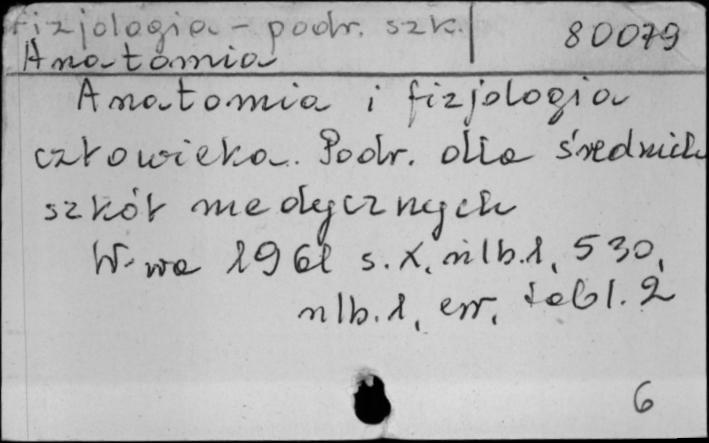 fizjologia - podr. szk.
80079
Anatomia
Anatomia i fizjologia
człowieka. Podr. dla średnich
szkół medycznych
W-wa 1961 s. X, nlb. 1, 530,
nlb. 1, err, tabl. 2
6